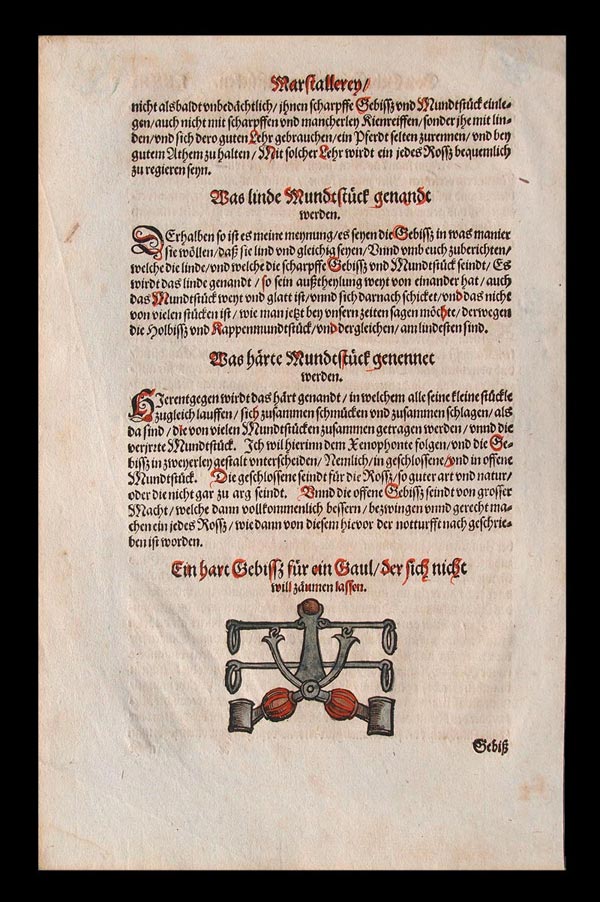 Marstallerey/
nicht alsbaldt vnbedächtlich/ jhnen scharpffe Gebissz vnd Mundtstück einle-
gen/auch nicht mit scharpffen vnd mancherley Kienreiffen/sonder jhe mit lin-
den/vnd sich dero guten Lehr gebrauchen/ein Pferdt selten zurennen/vnd bey
gutem Athem zu halten/Mit solcher Lehr wirdt ein jedes Rossz bequemlich
zu regieren seyn.
Was linde Mundtstück genandt
werden.
DErhalben so ist es meine meynung/es seyen die Gebissz in was manier
sie wöllen/daß sie lind vnd gleichig seyen/Vnnd vmb euch zuberichten/
welche die linde/vnd welche die scharpffe Gebissz vnd Mundtstück seindt/Es
wirdt das linde genandt/so sein außtheylung weyt von einander hat/auch
das Mundtstück weyt vnd glatt ist/vnnd sich darnach schicket/vnd das nicht
von vielen stücken ist/wie man jetzt bey vnsern zeiten sagen möchte/derwegen
die Holbissz vnd Kappenmundtstück/vnd dergleichen/am lindesten sind.
Was härte Mundtstück genennet
werden.
HIerentgegen wirdt das härt genandt/in welchem alle seine kleine stückle
zugleich lauffen/sich zusammen schmücken vnd zusammen schlagen/als
da sind/die von vielen Mundtstücken zusammen getragen werden/vnnd die
verjrrte Mundtstück. Ich wil hierinn dem Xenophonte folgen/vnd die Ge-
bissz in zweyerley gestalt vnterscheiden/Nemlich/in geschlossene/vnd in offene
Mundtstück. Die geschlossene seindt für die Rossz/so guter art vnd natur/
oder die nicht gar zu arg seindt. Vnnd die offene Gebissz seindt von grosser
Macht/welche dann vollkommenlich bessern/bezwingen vnnd gerecht ma-
chen ein jedes Rossz/wie dann von diesem hievor der notturfft nach geschrie-
ben ist worden.
Ein hart Gebissz für ein Gaul/der sich nicht
will zäumen lassen.
Gebiß